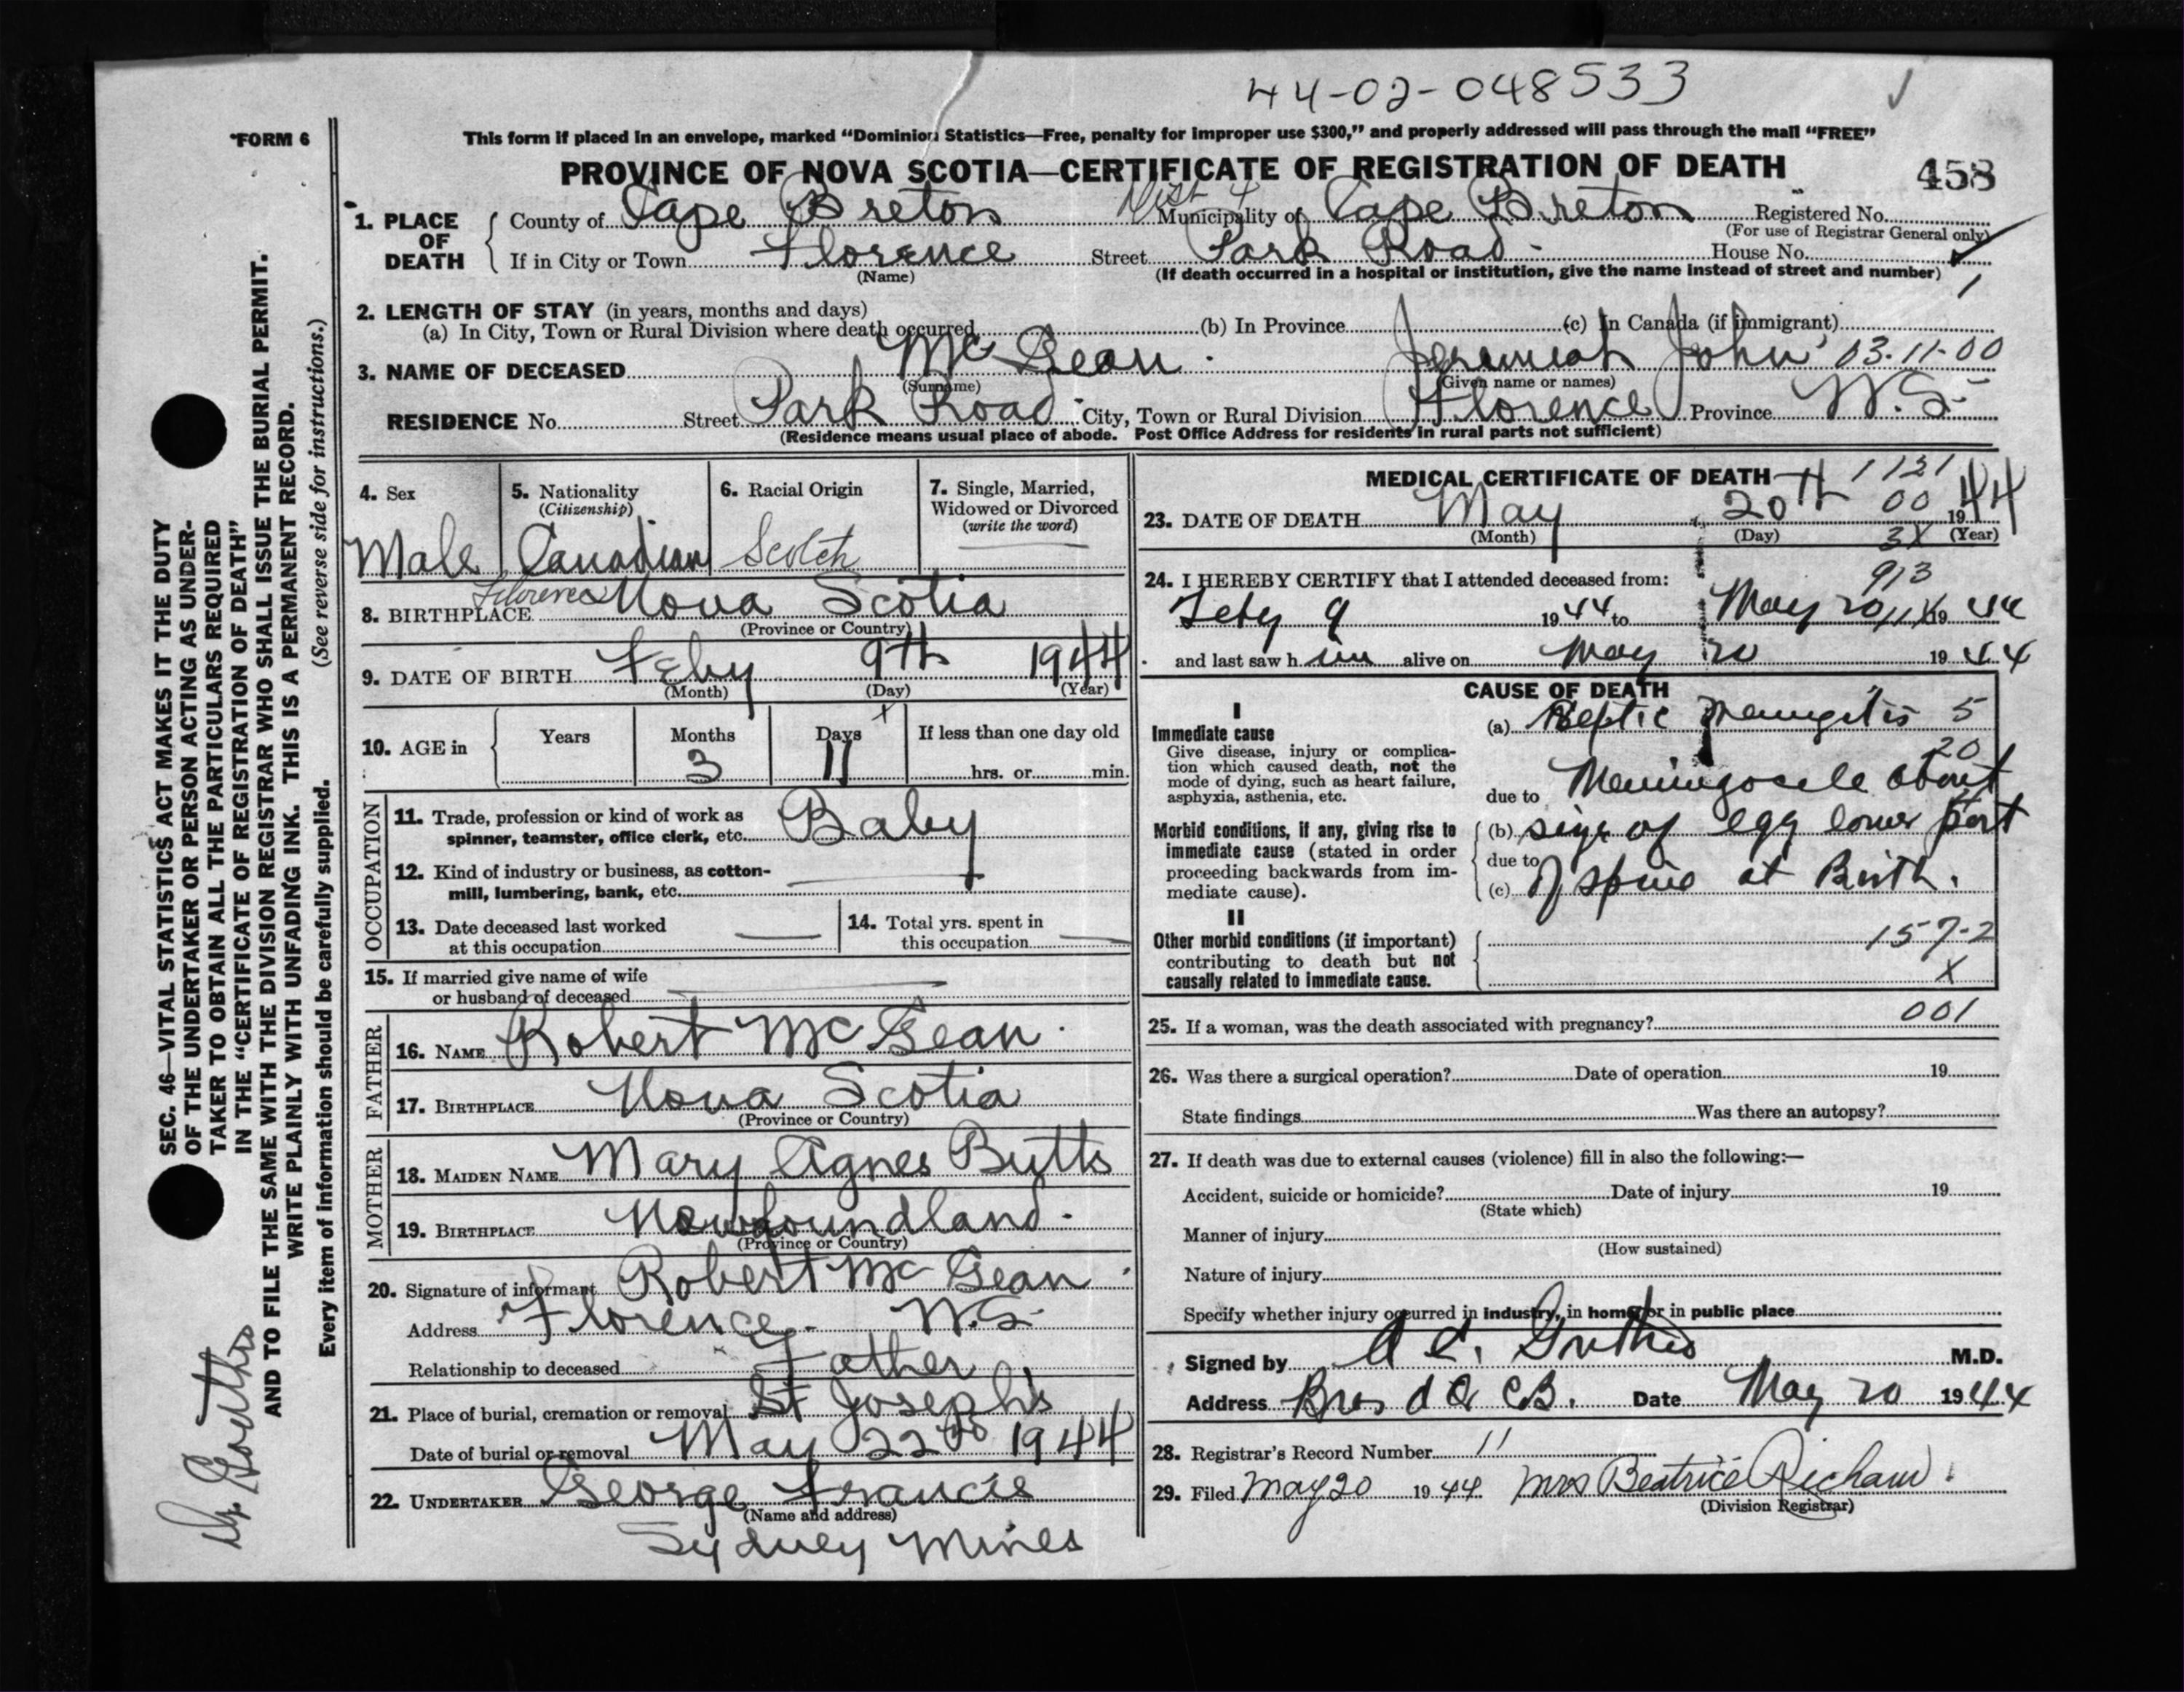 44-02-048533
"FORM 6
This form if placed in an envelope, marked "Dominion Statistics—Free, penalty for improper use $300," and properly addressed will pass through the mail "FREE"
PROVINCE OF NOVA SCOTIA—CERTIFICATE OF REGISTRATION OF DEATH
458
1. PLACE OF DEATH County of Cape Breton Dist 4 Municipality of Cape Breton Registered No.
(For use of Registrar General only)
If in City or Town Florence Street Park Road - House No.
(Name) (If death occurred in a hospital or institution, give the name instead of street and number)
2. LENGTH OF STAY (in years, months and days)
(a) In City, Town or Rural Division where death occurred (b) In Province (c) In Canada (if immigrant)
3. NAME OF DECEASED Mc Gean. Jeremiah John 03-11-00
(Surname) (Given name or names)
RESIDENCE No. Street Park Road City, Town or Rural Division Florence Province N.S.
(Residence means usual place of abode. Post Office Address for residents in rural parts not sufficient)
4. Sex 5. Nationality (Citizenship) 6. Racial Origin 7. Single, Married, Widowed or Divorced (write the word)
Male Canadian Scotch
8. BIRTHPLACE Florence Nova Scotia
(Province or Country)
9. DATE OF BIRTH Feby 9th 1944
(Month) (Day) (Year)
10. AGE in Years Months Days If less than one day old
3 11 hrs. or min.
OCCUPATION
11. Trade, profession or kind of work as spinner, teamster, office clerk, etc. Baby
12. Kind of industry or business, as cotton-mill, lumbering, bank, etc.
13. Date deceased last worked at this occupation
14. Total yrs. spent in this occupation
15. If married give name of wife or husband of deceased
FATHER
16. NAME Robert McGean.
17. BIRTHPLACE Nova Scotia
(Province or Country)
MOTHER
18. MAIDEN NAME Mary Agnes Butts
19. BIRTHPLACE Newfoundland.
(Province or Country)
20. Signature of informant Robert McGean
Address Florence. N.S.
Relationship to deceased Father
21. Place of burial, cremation or removal St Joseph's
Date of burial or removal May 22nd 1944
22. UNDERTAKER George Francis
(Name and address)
Sydney Mines
MEDICAL CERTIFICATE OF DEATH 1121
23. DATE OF DEATH May 20th 00 1944
(Month) (Day) 3X (Year)
24. I HEREBY CERTIFY that I attended deceased from: 913
Feby 9 1944 to May 20 1944
and last saw h im alive on May 20 1944
CAUSE OF DEATH
I
Immediate cause
Give disease, injury or complication which caused death, not the mode of dying, such as heart failure, asphyxia, asthenia, etc.
(a) Septic Meningitis 5
20
due to Meningocele about
Morbid conditions, if any, giving rise to immediate cause (stated in order proceeding backwards from immediate cause).
(b) size of egg lower part
due to
(c) of spine at Birth.
II
Other morbid conditions (if important) contributing to death but not causally related to immediate cause.
157-2
X
25. If a woman, was the death associated with pregnancy? 001
26. Was there a surgical operation? Date of operation 19
State findings Was there an autopsy?
27. If death was due to external causes (violence) fill in also the following:—
Accident, suicide or homicide? Date of injury 19
(State which)
Manner of injury
(How sustained)
Nature of injury
Specify whether injury occurred in industry, in home, or in public place
Signed by A C. M.D.
Address Bras d Or CB. Date May 20 1944
28. Registrar's Record Number 11
29. Filed May 20 1944 Mrs Beatrice
(Division Registrar)
SEC. 46—VITAL STATISTICS ACT MAKES IT THE DUTY
OF THE UNDERTAKER OR PERSON ACTING AS UNDER-
TAKER TO OBTAIN ALL THE PARTICULARS REQUIRED
IN THE "CERTIFICATE OF REGISTRATION OF DEATH"
AND TO FILE THE SAME WITH THE DIVISION REGISTRAR WHO SHALL ISSUE THE BURIAL PERMIT.
WRITE PLAINLY WITH UNFADING INK. THIS IS A PERMANENT RECORD.
Every item of information should be carefully supplied. (See reverse side for instructions.)
Dr.